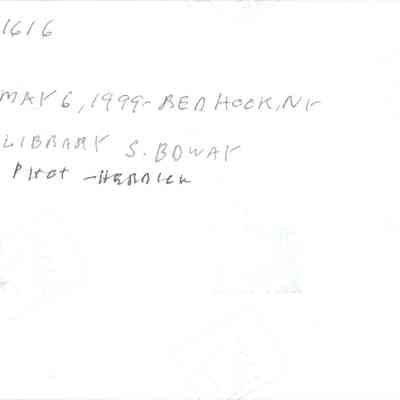 1616
MAY 6, 1999- RED HOOK, NY
LIBRARY S. BOWAY
PHOT -HERDLER